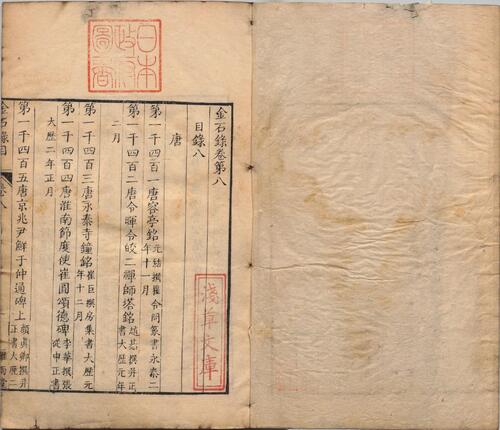 金石錄卷第八
目錄八
唐
第一千四百一唐容亭銘元結撰瞿令問篆書永泰二年十一月
第一千四百二唐令暉令皎二禪師塔銘撰并正書大歷元年二月
第一千四百三唐永泰寺鐘銘崔巨撰房集書大歷元年十二月
第一千四百四唐淮南節度使崔圓頌德碑李華撰張從申正書
大歷二年正月
第一千四百五唐京兆尹鮮于仲通碑上顏真卿撰并正書大歷二
金石錄目
卷八
雅雨堂
日本
政府
圖書
淺草文庫